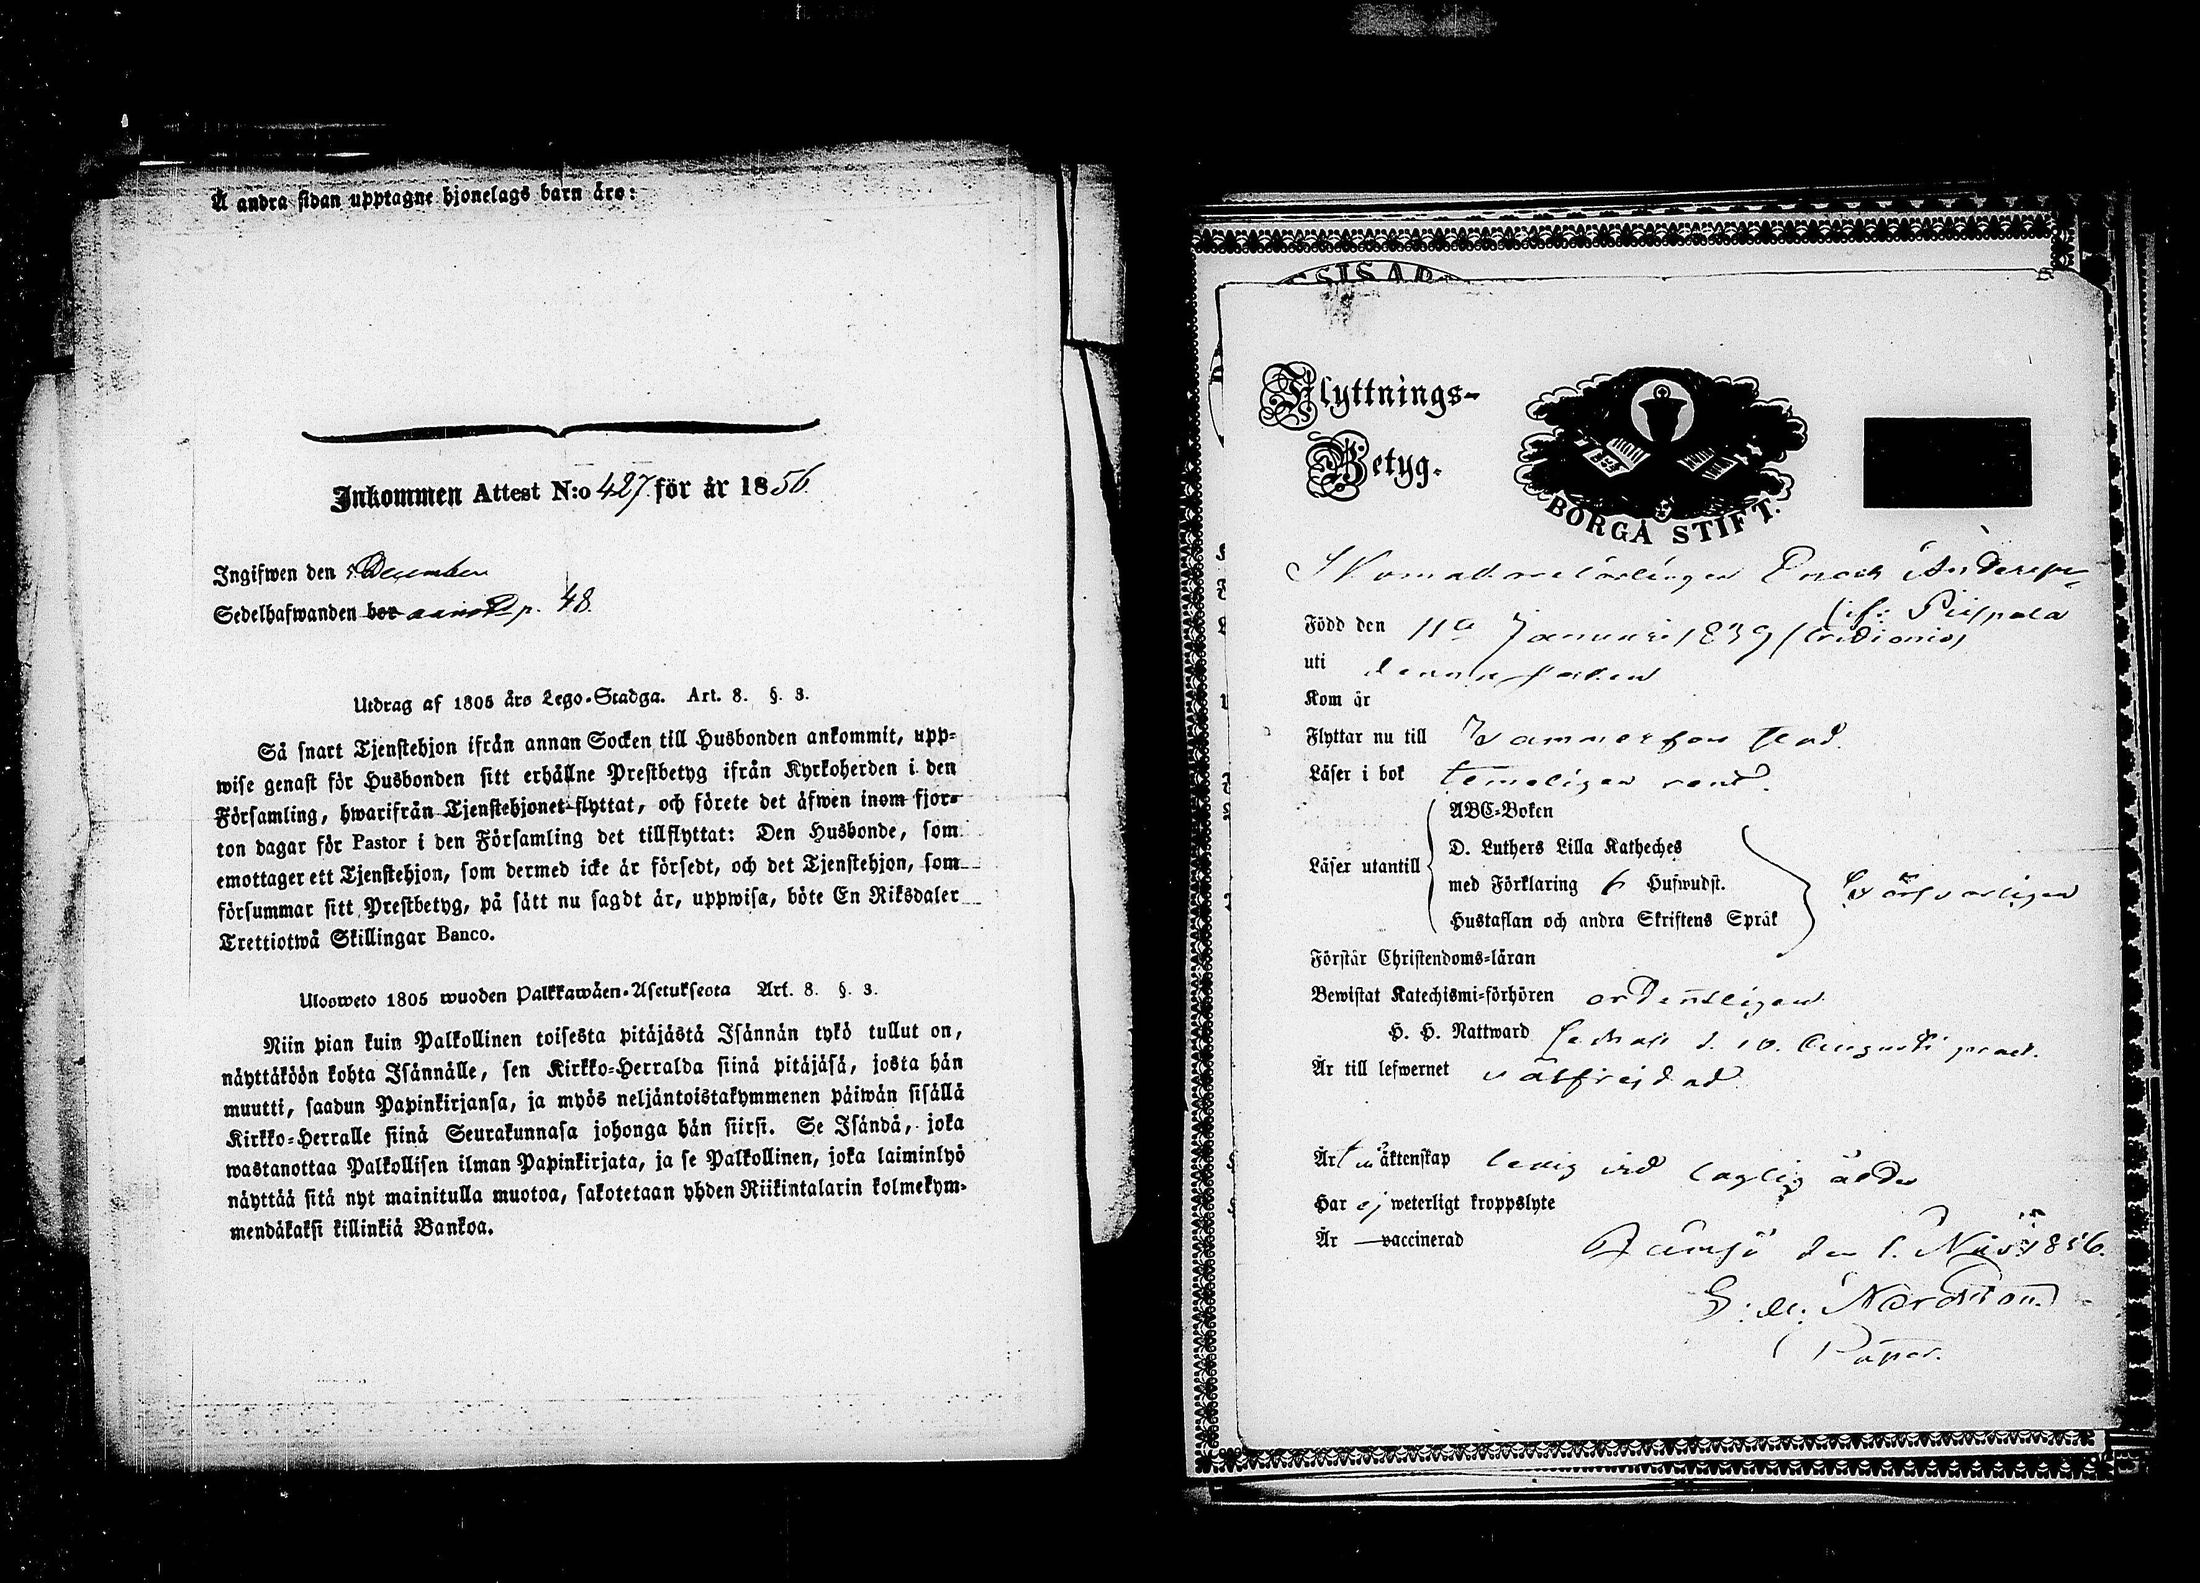 Å andra sidan upptagne hjonelags barn äro:
Inkommen Attest N:o 427 för år 1856.
Ingifwen den 5 December
Sedelhafwanden bor p. 48.
Utdrag af 1805 års Lego-Stadga. Art. 8. §. 3.
Så snart Tjenstehjon ifrån annan Socken till Husbonden ankommit, upp-
wise genast för Husbonden sitt erhållne Prestbetyg ifrån Kyrkoherden i den
Församling, hwarifrån Tjenstehjonet flyttat, och förete det äfwen inom fjor-
ton dagar för Pastor i den Församling det tillflyttat: Den Husbonde, som
emottager ett Tjenstehjon, som dermed icke är försedt, och det Tjenstehjon, som
försummar sitt Prestbetyg, på sätt nu sagdt är, uppwisa, böte En Riksdaler
Trettiotwå Skillingar Banco.
Ulosweto 1805 wuoden Palkkawäen-Asetuksesta Art. 8. §. 3.
Niin pian kuin Palkollinen toisesta pitäjästä Isännän tykö tullut on,
näyttäköön kohta Isännälle, sen Kirkko-Herralda siinä pitäjäsä, josta hän
muutti, saadun Papinkirjansa, ja myös neljäntoistakymmenen päiwän sisällä
Kirkko-Herralle siinä Seurakunnasa johonga hän siirsi. Se Isändä, joka
wastanottaa Palkollisen ilman Papinkirjata, ja se Palkollinen, joka laiminlyö
näyttää sitä nyt mainitulla muotoa, sakotetaan yhden Riikintalarin kolmekym-
mendäkaksi killinkiä Bankoa.
Flyttnings-
Betyg.
BORGÅ STIFT.
Skomakarelärlingen Enoch Andersson
Född den 11te Januari 1839 if: Piispala
uti denna socken
Kom år
Flyttar nu till Tammerfors stad.
Läser i bok temeligen rent.
Läser utantill
ABC-Boken
D. Luthers Lilla Katheches
med Förklaring 6 Hufwudst.
Hustaflan och andra Skriftens Språk
försvarligen
Förstår Christendoms-läran
Bewistat Katechismi-förhören ordentligen
H. H. Nattward d. 10. Augusti
Är till lefwernet välfrejdad
Är t äktenskap ledig vid laglig ålder
Har ej weterligt kroppslyte
Är vaccinerad
Jämsä den 1. Nov: 1856.
Nordström